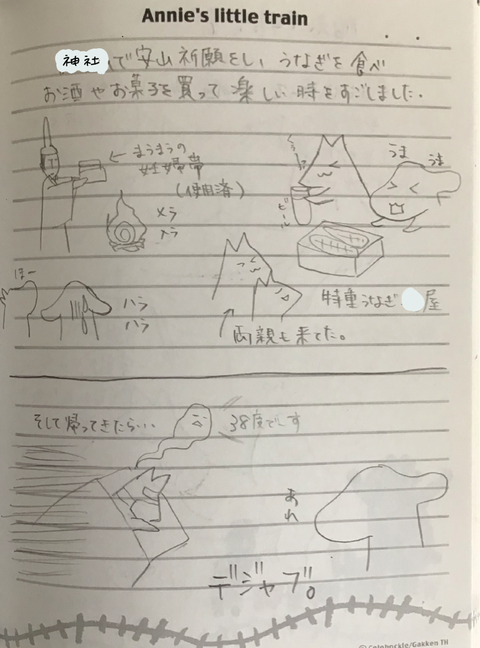 Annie's little train
神社で安山祈願をし、うなぎを食べ
お酒やお菓子を買って楽しい時をすごしました。
←まうまうの
妊婦帯
(使用済)
メラ
メラ
ビール
うま
うま
ほー
ハラ
ハラ
特重うなぎ 屋
両親も来てた。
そして帰ってきたら…
38度でーす
あれ
デジャブ。